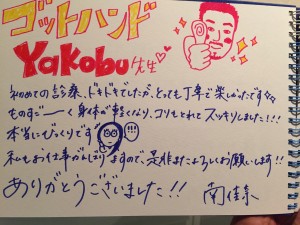 ゴットハンド
Yakobu先生
初めての診療、ドキドキでしたが、とっても丁寧で楽しかったです
ものすごーーく身体が軽くなり、コリもとれてスッキリしました!!!
本当にびっくりです !!!
私もお仕事がんばりますので、是非またよろしくお願いします!!
ありがとうございました!! 南佳奈